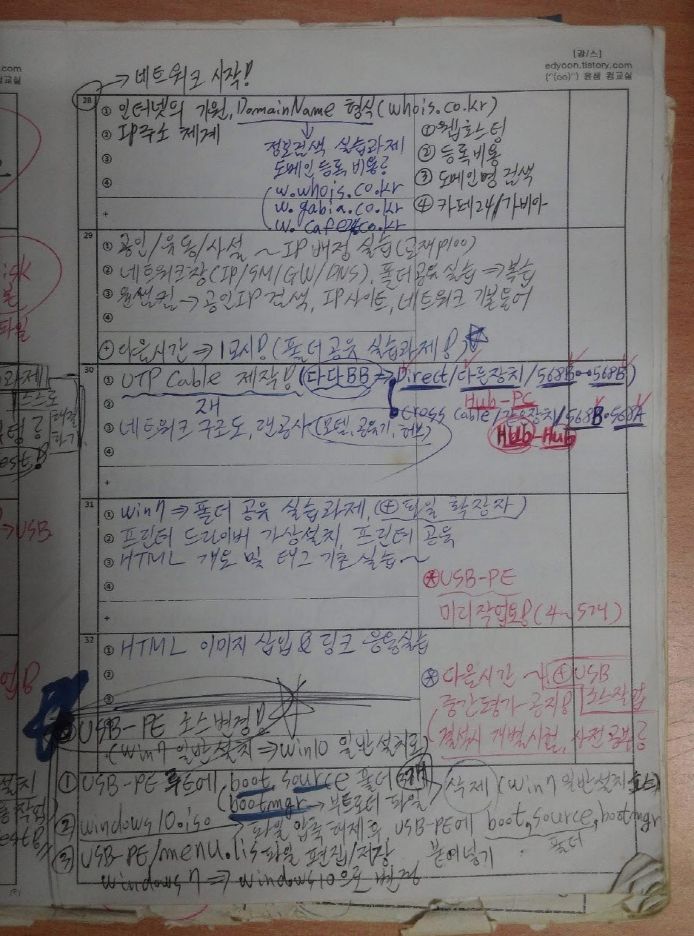 [강/스]
edyoon.tistory.com
(*(oo)*) 윤샘 컴교실
→ 네트워크 시작!
28
① 인터넷의 기원, DomainName 형식(whois.co.kr)
② IP주소 체계
③
④
+
정보검색 실습과제
도메인등록 비용?
w.whois.co.kr
w.gabia.co.kr
w.cafe24.co.kr
① 웹호스팅
② 등록비용
③ 도메인명 검색
④ 카페24/가비아
29
① 공인/유동/사설 ~ IP 배정 실습(교재p100)
② 네트워크창(IP/SM/GW/DNS), 폴더공유 실습 ⇒ 복습
③ 윤샘컴 → 공인IP 검색, IP사이트, 네트워크 기본용어
④
⊕ 다음시간 ⇒ 1교시! (폴더 공유 실습과제!)
30
① UTP Cable 제작! (다다BB ⇒ Direct/다른장치/568B↔568B)
Hub-PC
②
Cross cable/같은장치/568B-568A
Hub-Hub
③ 네트워크 구조도, 랜공사 (모뎀, 공유기, 허브)
④
+
31
① win7 ⇒ 폴더 공유 실습과제, (⊕ 파일 확장자)
② 프린터 드라이버 가상설치, 프린터 공유
③ HTML 개요 및 태그 기초 실습 ~
④
+
USB-PE
미리작업요망(4~5개)
32
① HTML 이미지 삽입 & 링크 응용실습
②
다음시간 ~ ⊕ USB
중간평가 공지!
결석시 개별시험, 사전공부
USB-PE 소스변경!!
(win7 일반설치 ⇒ win10 일반설치로)
① USB-PE 루트에 boot, source 폴더
bootmgr → 부트로더 파일
삭제 (win7 일반설치 소스)
② windows10.iso → 파일 압축해제 후 USB-PE에 boot, source, bootmgr
붙여넣기
폴더
③ USB-PE/menu.lis 파일 편집/저장
windows7 ⇒ windows10으로 변경